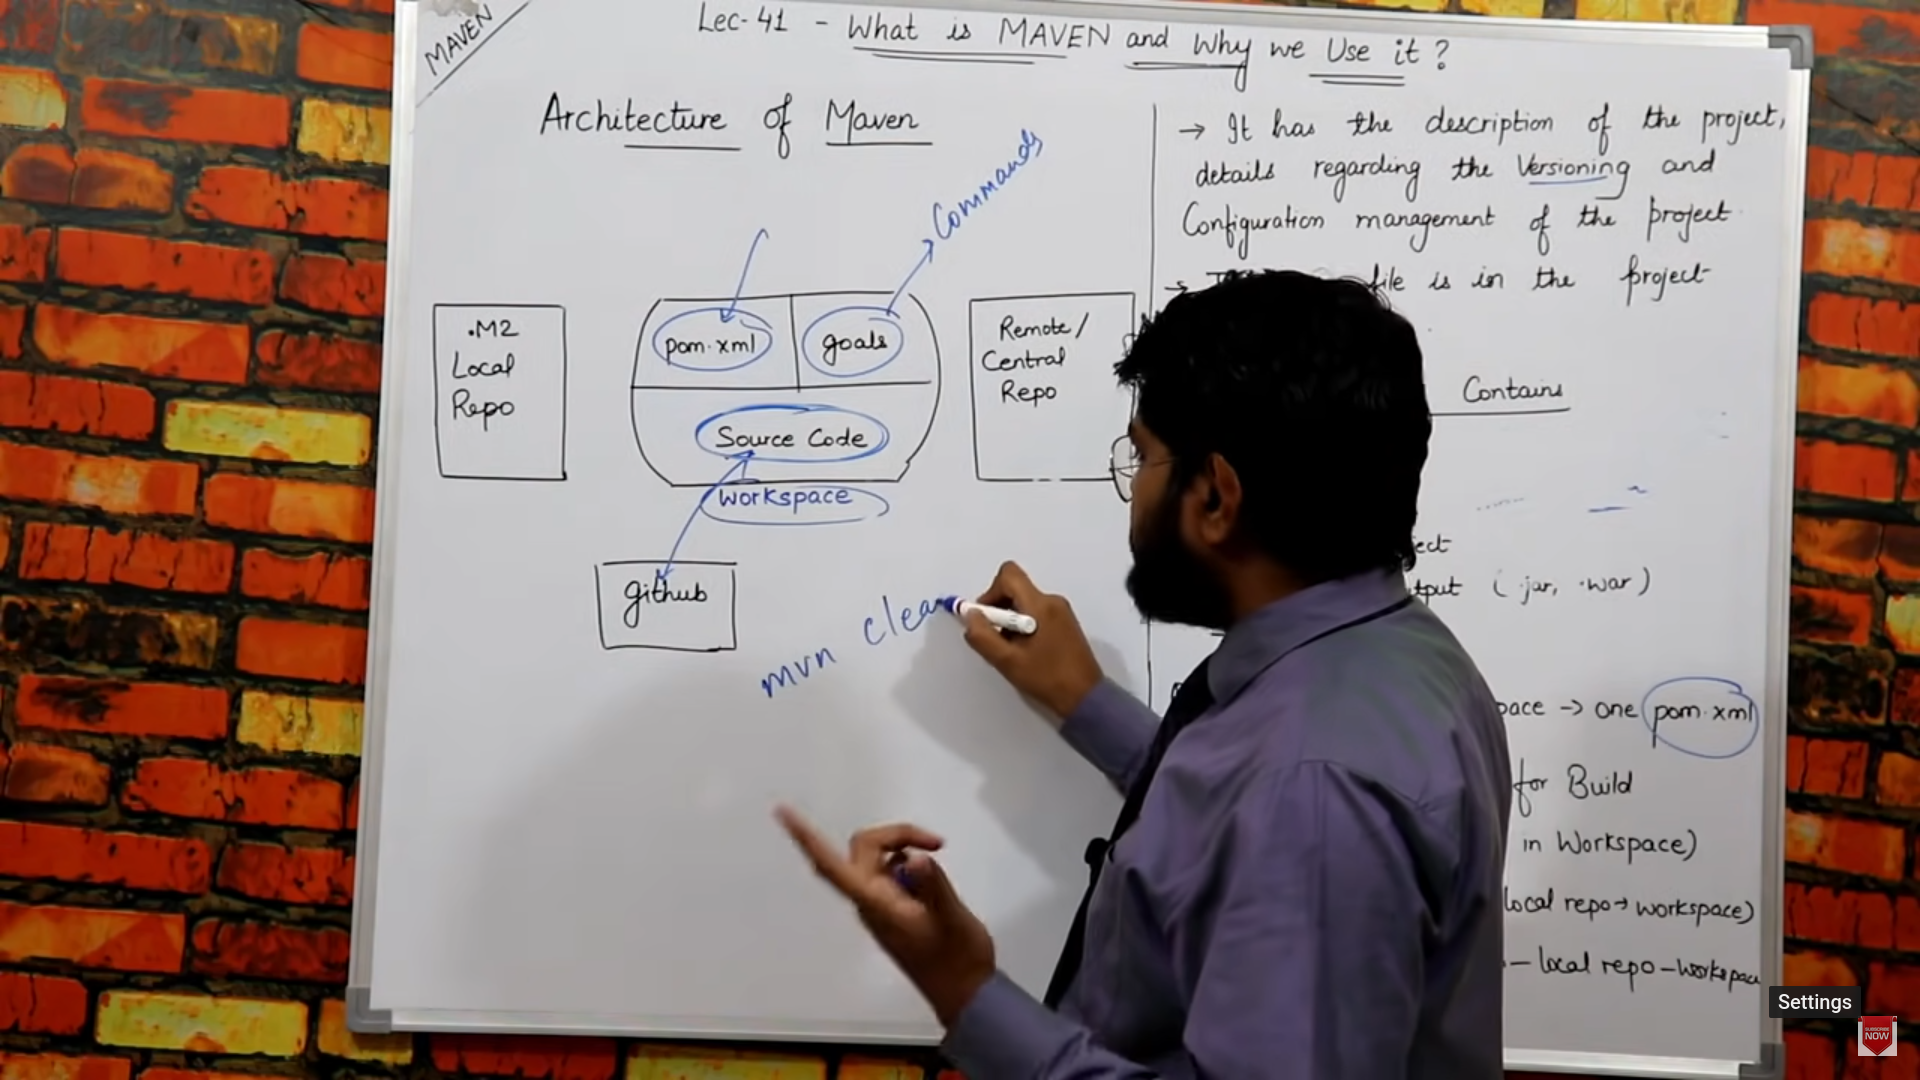 MAVEN
Lec-41 - What is MAVEN and Why we Use it?
Architecture of Maven
Commands
.M2
Local
Repo
pom.xml
goals
Source Code
workspace
Remote/
Central
Repo
github
mvn clea
→ It has the description of the project,
details regarding the Versioning and
Configuration management of the project.
→ file is in the project
Contains
ect
tput (.jar, .war)
pace → one pom.xml
for Build
in Workspace)
local repo → workspace)
- local repo - workspace
Settings
SUBSCRIBE
NOW